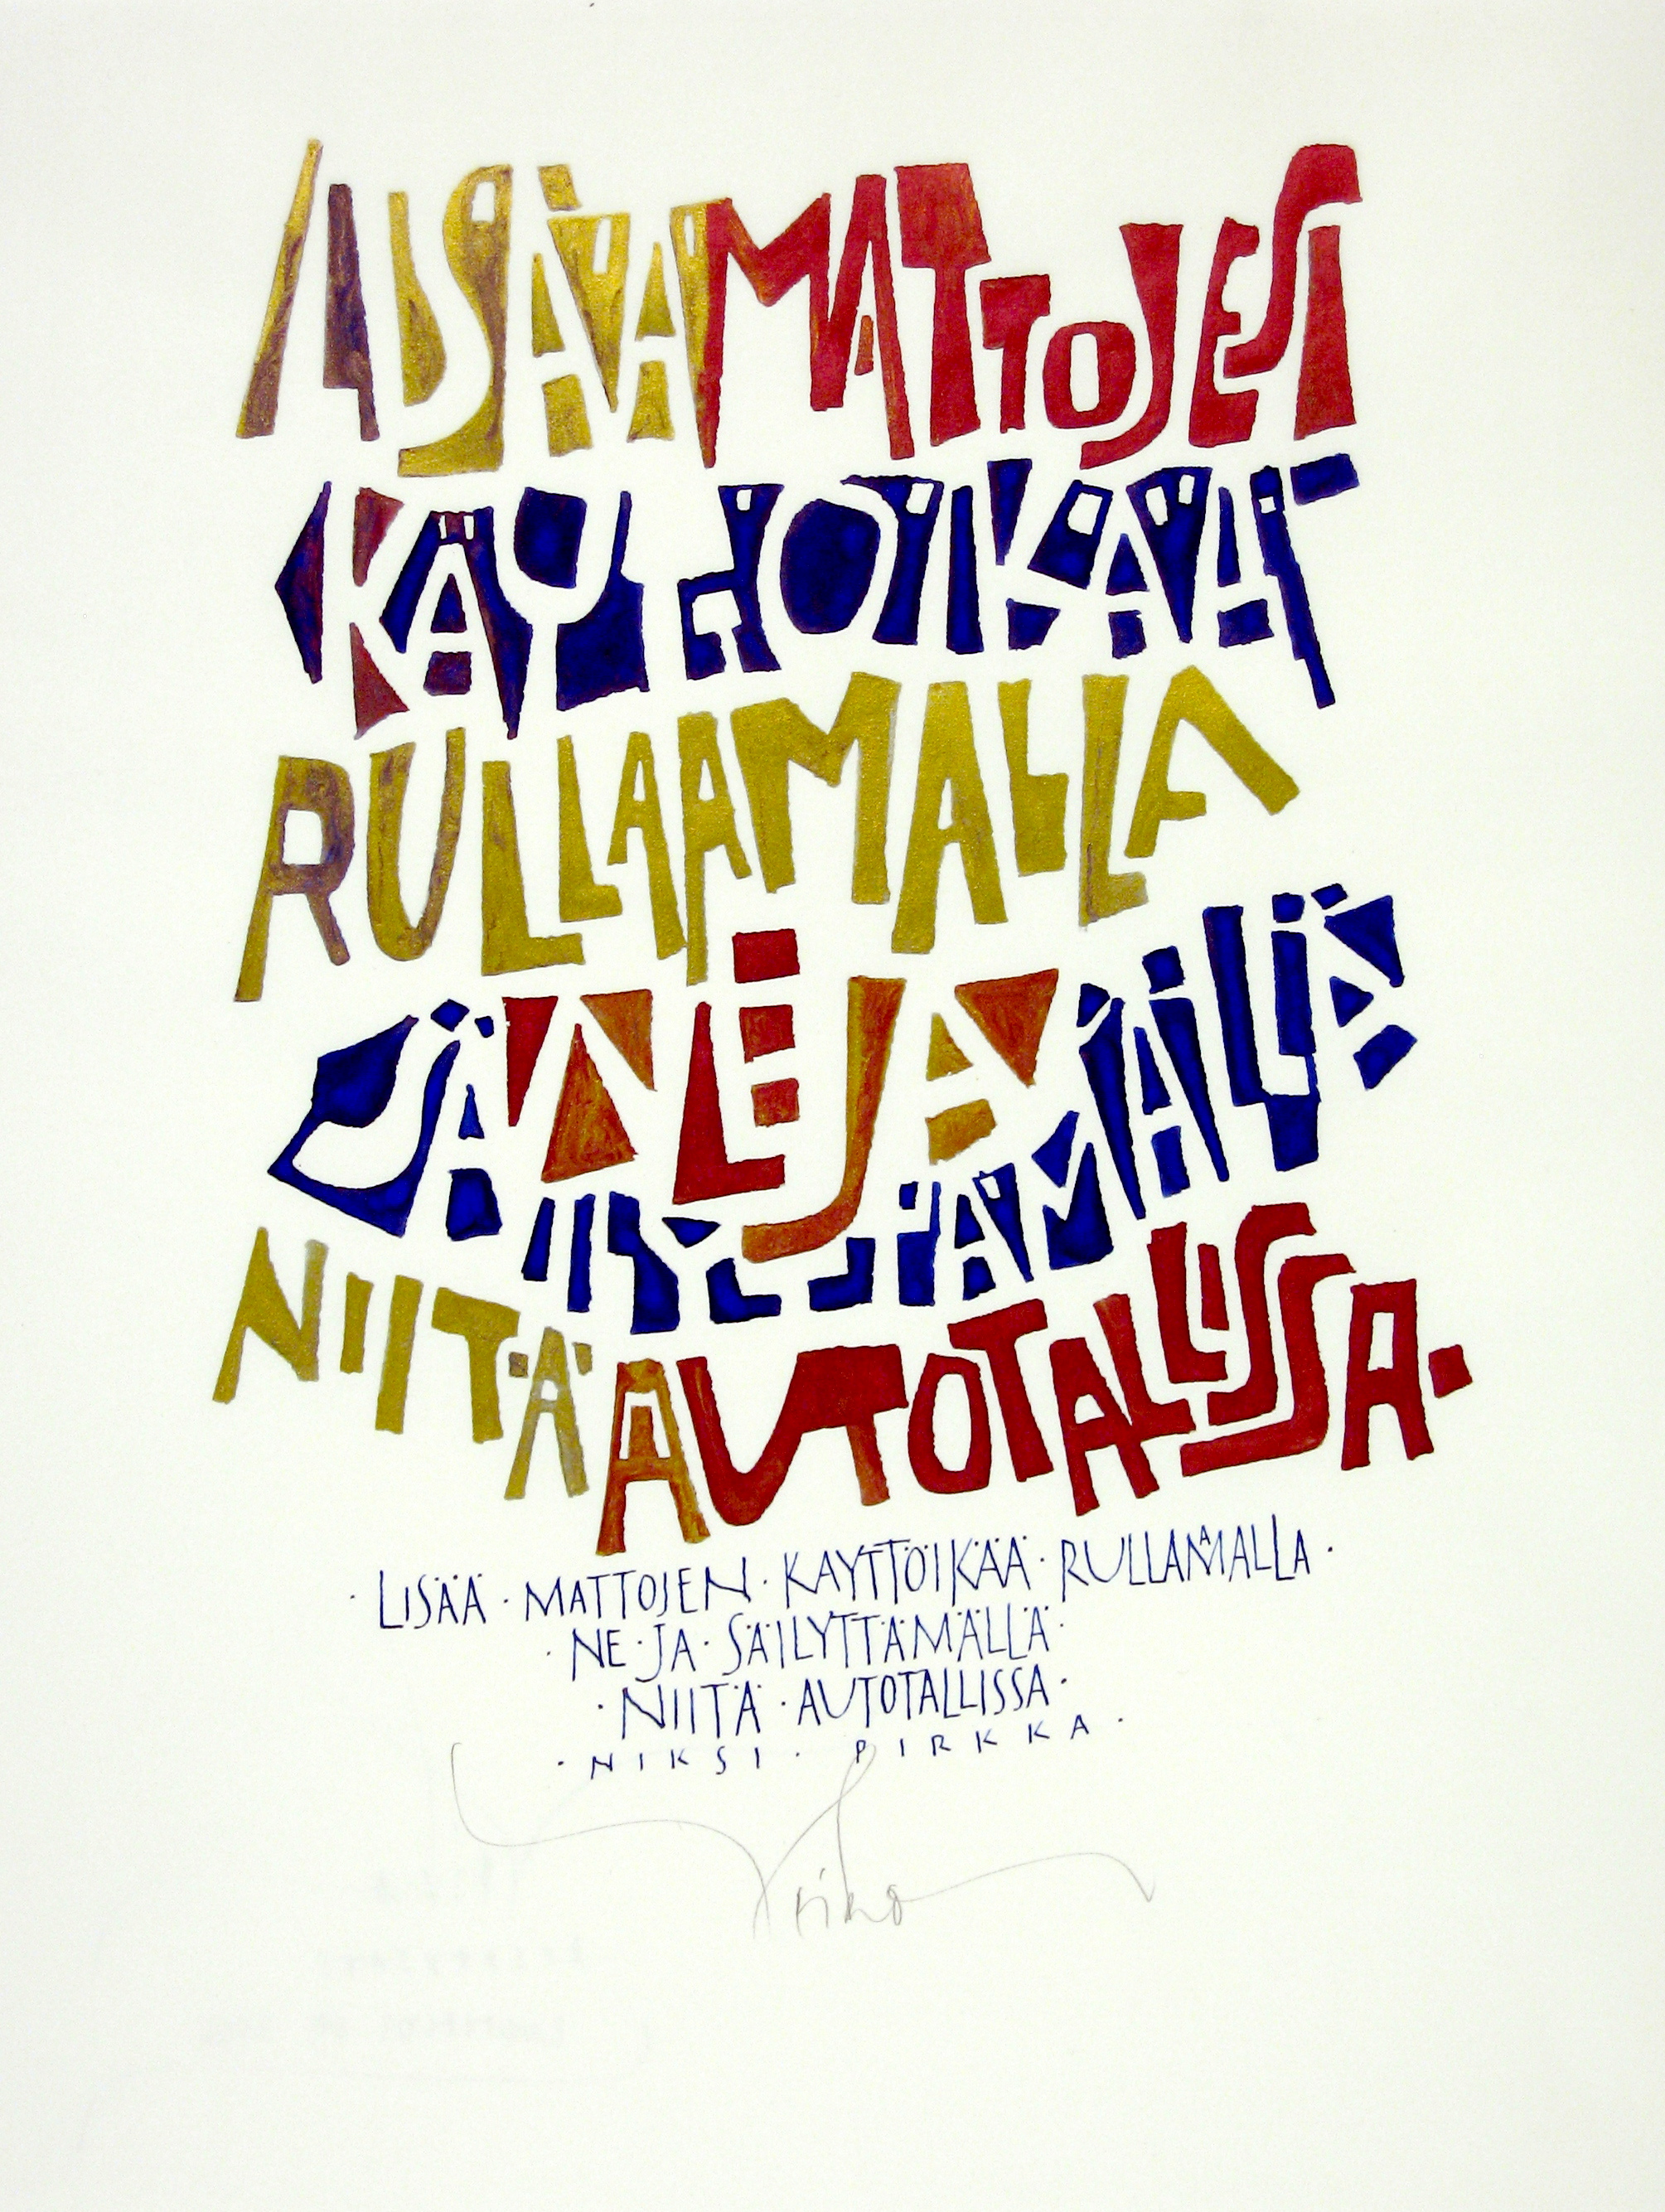 LISÄÄ MATTOJEN
KÄYTTÖIKÄÄ
RULLAAMALLA
NE JA
SÄILYTTÄMÄLLÄ
NIITÄ AUTOTALLISSA.
· LISÄÄ · MATTOJEN · KÄYTTÖIKÄÄ · RULLAAMALLA ·
· NE · JA · SÄILYTTÄMÄLLÄ ·
· NIITÄ · AUTOTALLISSA ·
· NIKSI · PIRKKA ·